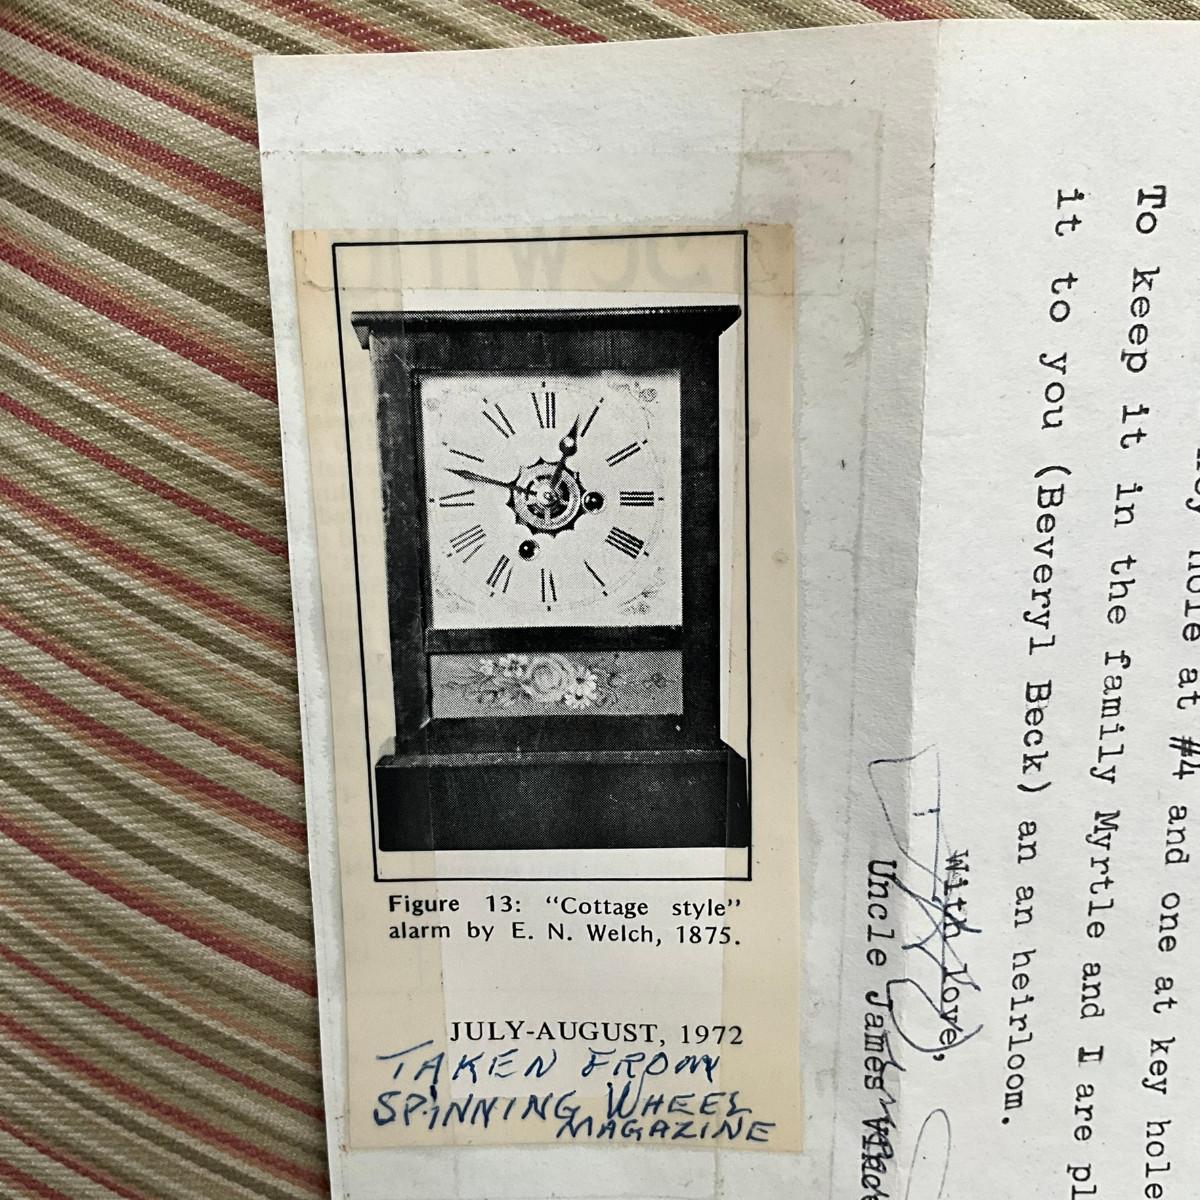 Figure 13: “Cottage style”
alarm by E. N. Welch, 1875.
JULY-AUGUST, 1972
TAKEN FROM
SPINNING WHEEL
MAGAZINE
hole at #4 and one at key hole
To keep it in the family Myrtle and I are
it to you (Beveryl Beck) an an heirloom.
With love,
Uncle James